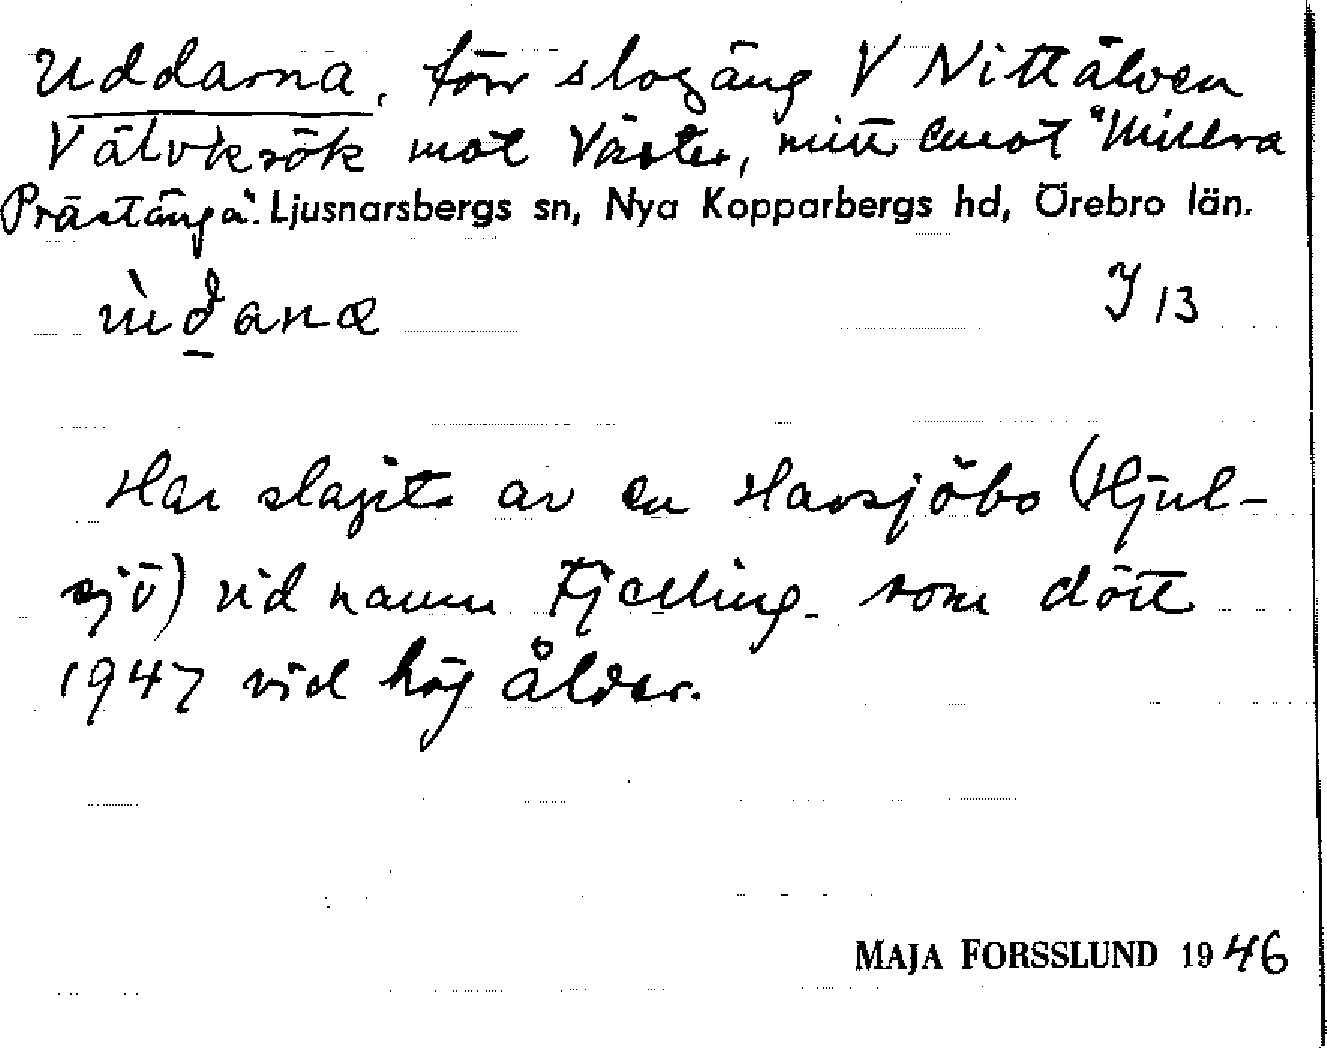 Uddarna, förr slogäng V Nittälven
V älvkrök mot Väster, mitt emot "Millva
Prästänga". Ljusnarsbergs sn, Nya Kopparbergs hd, Örebro län.
ùdana I 13
Har slagits av en Havsjöbo (Hjul-
sjö) vid namn Fjelling som dött
1947 vid hög ålder.
MAJA FORSSLUND 1946